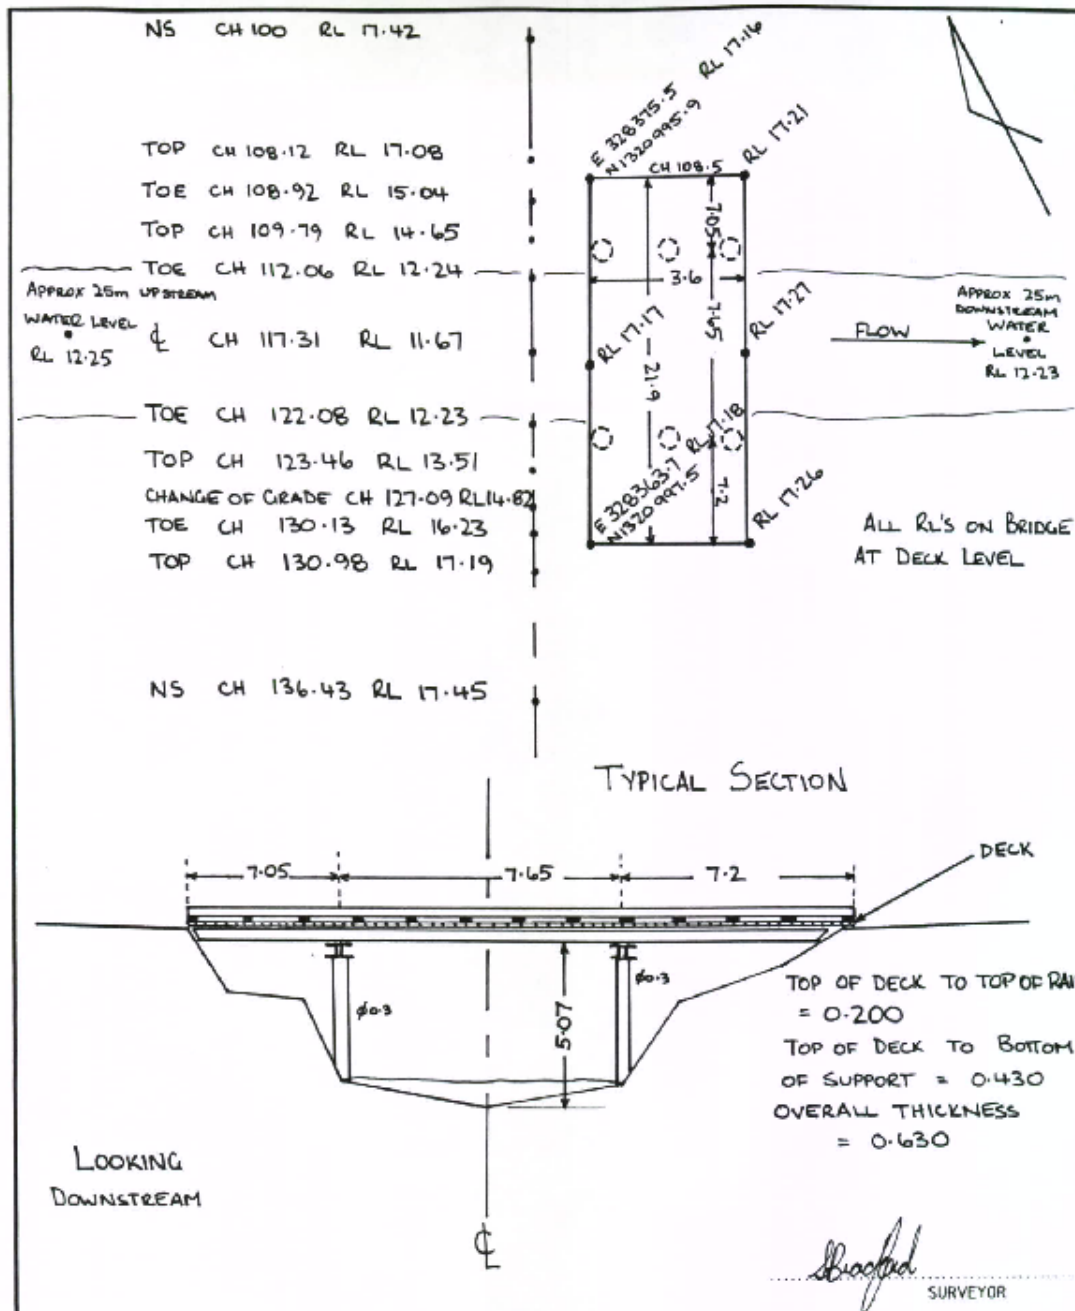 NS CH 100 RL 17.42
TOP CH 108.12 RL 17.08
TOE CH 108.92 RL 15.04
TOP CH 109.79 RL 14.65
TOE CH 112.06 RL 12.24
APPROX 25m UPSTREAM
WATER LEVEL
RL 12.25
℄ CH 117.31 RL 11.67
TOE CH 122.08 RL 12.23
TOP CH 123.46 RL 13.51
CHANGE OF GRADE CH 127.09 RL 14.82
TOE CH 130.13 RL 16.23
TOP CH 130.98 RL 17.19
NS CH 136.43 RL 17.45
E 328375.5 RL 17.16
N1320995.9
RL 17.21
CH 108.5
7.05
3.6
7.65
RL 17.27
RL 17.17
21.9
E 328363.7 RL 17.18
N1320997.5
7.2
RL 17.26
FLOW
APPROX 25m
DOWNSTREAM
WATER
LEVEL
RL 12.23
ALL RL'S ON BRIDGE
AT DECK LEVEL
TYPICAL SECTION
DECK
7.05 7.65 7.2
ø0.3
ø0.3
5.07
TOP OF DECK TO TOP OF RAI
= 0.200
TOP OF DECK TO BOTTOM
OF SUPPORT = 0.430
OVERALL THICKNESS
= 0.630
LOOKING
DOWNSTREAM
℄
SURVEYOR